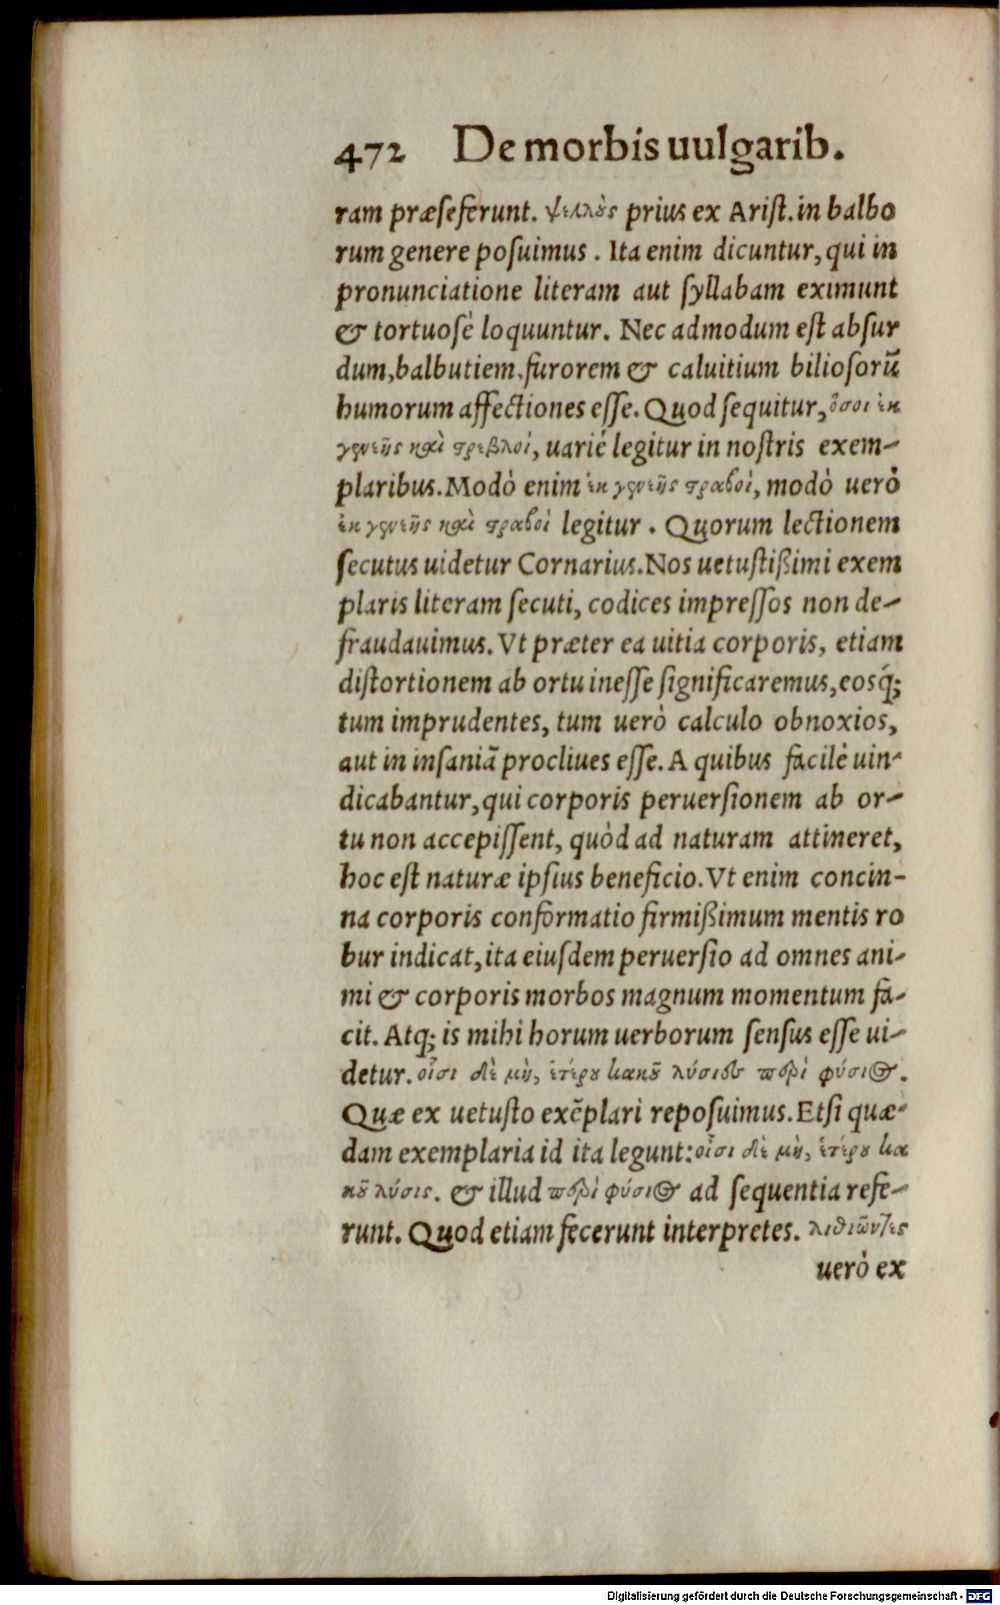 472 De morbis uulgarib.
ram præseferunt. ψελλὸς prius ex Arist. in balbo
rum genere posuimus. Ita enim dicuntur, qui in
pronunciatione literam aut syllabam eximunt
& tortuosè loquuntur. Nec admodum est absur
dum, balbutiem, furorem & caluitium biliosorũ
humorum affectiones esse. Quod sequitur, ὅσοι ἐκ
γενεῆς καὶ στρεβλοί, uariè legitur in nostris exem-
plaribus. Modò enim ἐκ γενεῆς στραβοὶ, modò uerò
ἐκ γενεῆς καὶ στραβοὶ legitur. Quorum lectionem
secutus uidetur Cornarius. Nos uetustißimi exem
plaris literam secuti, codices impressos non de-
fraudauimus. Vt præter ea uitia corporis, etiam
distortionem ab ortu inesse significaremus, eosq́;
tum imprudentes, tum uerò calculo obnoxios,
aut in insaniã procliues esse. A quibus facilè uin-
dicabantur, qui corporis peruersionem ab or-
tu non accepissent, quòd ad naturam attineret,
hoc est naturæ ipsius beneficio. Vt enim concin-
na corporis conformatio firmißimum mentis ro
bur indicat, ita eiusdem peruersio ad omnes ani-
mi & corporis morbos magnum momentum fa-
cit. Atq; is mihi horum uerborum sensus esse ui-
detur. οἷσι δὲ μὴ, ἑτέρου κακοῦ λύσιες περὶ φύσιος.
Quæ ex uetusto exẽplari reposuimus. Etsi quæ-
dam exemplaria id ita legunt: οἷσι δὲ μὴ, ἑτέρου κα
κοῦ λύσις. & illud περὶ φύσιος ad sequentia refe-
runt. Quod etiam fecerunt interpretes. λιθιῶντες
uerò ex
Digitalisierung gefördert durch die Deutsche Forschungsgemeinschaft - DFG